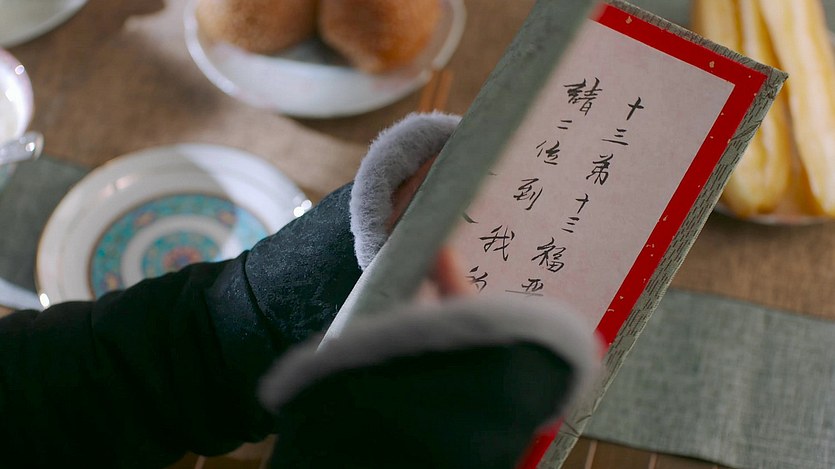 十三弟十三福
請二位到我